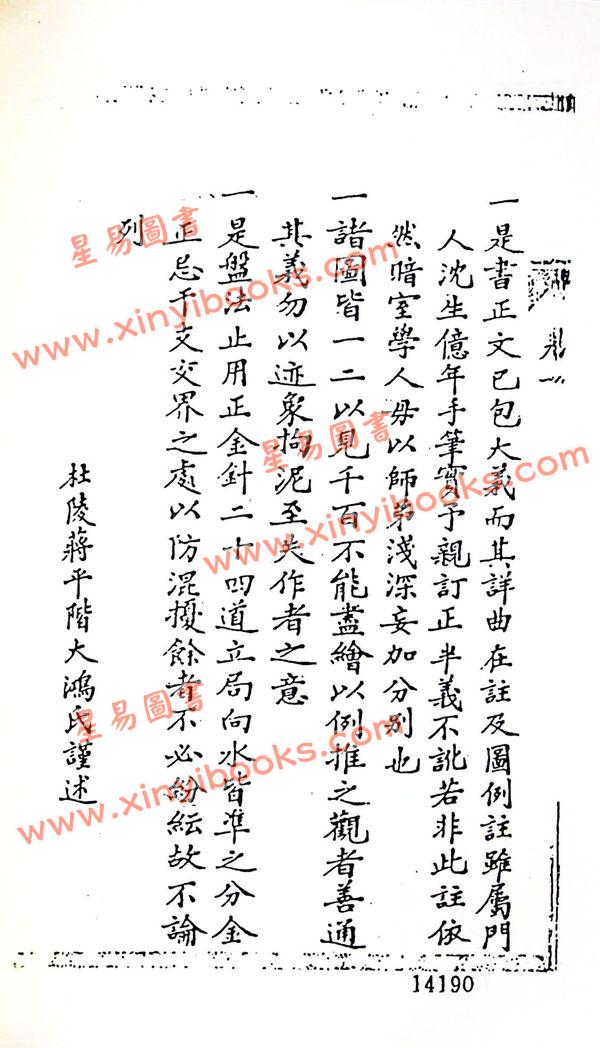 一是書正文已包大義而其詳曲在註及圖例註雖屬門
人沈生億年手筆實予親訂正半義不訛若非此註依
然暗室學人毋以師弟淺深妄加分別也
一諸圖皆一二以見千百不能盡繪以例推之觀者善通
其義勿以迹象拘泥至失作者之意
一是盤法止用正金針二十四道立局向水皆準之分金
正忌干支交界之處以防混擾餘者不必紛紜故不論
列
杜陵蔣平階大鴻氏謹述
14190
星易圖書
www.xinyibooks.com
星易圖書
www.xinyibooks.com
星易圖書
www.xinyibooks.com